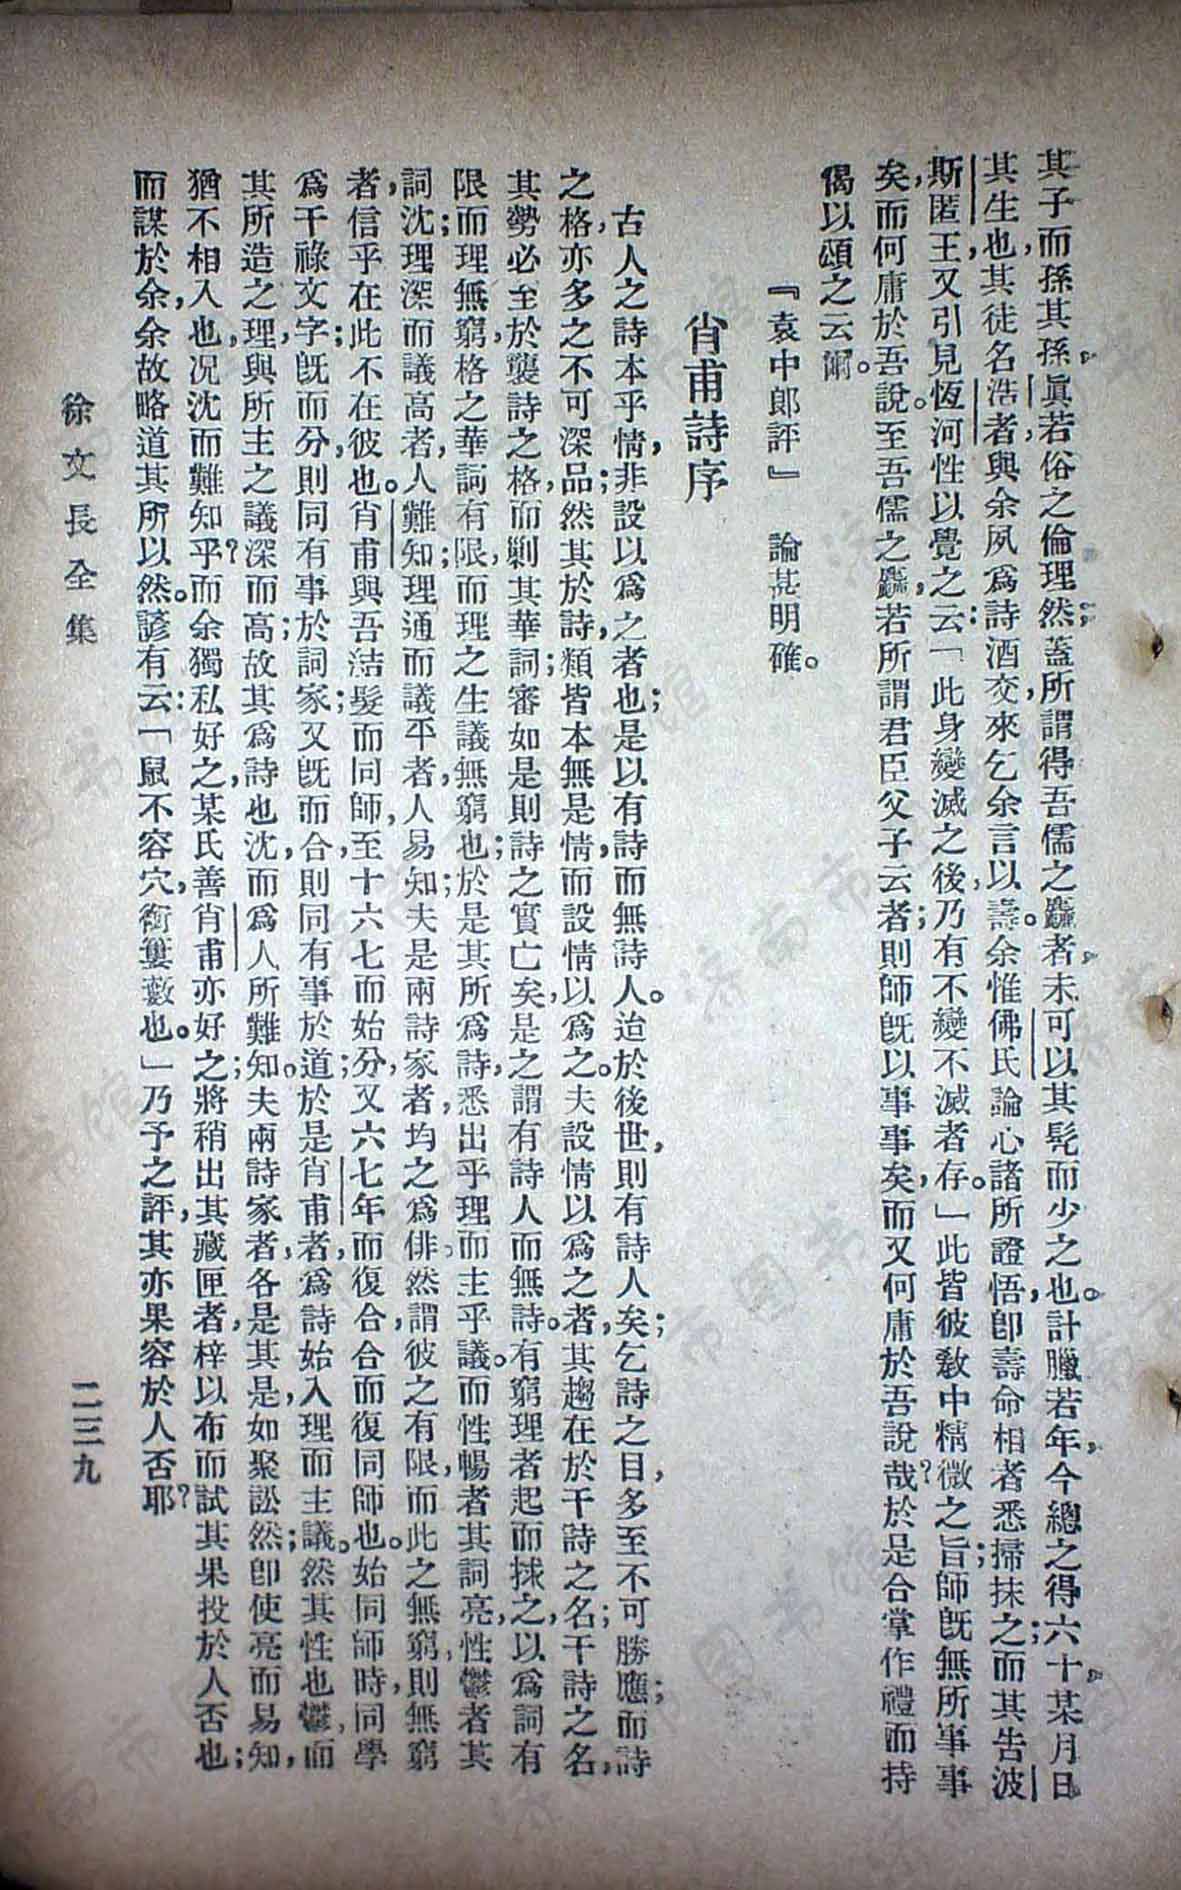 其子，而孫其孫，眞若俗之倫理然；蓋所謂得吾儒之麤者，未可以其髡而少之也。計臘若年，今總之得六十，某月日
其生也，其徒名浩者，與余夙爲詩酒交，來乞余言以壽。余惟佛氏論心諸所證悟，卽壽命相者悉掃抹之；而其告波
斯匿王又引見恆河性以覺之，云：「此身變滅之後，乃有不變不滅者存。」此皆彼敎中精微之旨；師旣無所事事
矣，而何庸於吾說。至吾儒之麤，若所謂君臣父子云者；則師旣以事事矣，而又何庸於吾說哉？於是合掌作禮而持
偈以頌之云爾。
『袁中郞評』　論甚明確。
肖甫詩序
古人之詩本乎情，非設以爲之者也；是以有詩而無詩人。迨於後世，則有詩人矣；乞詩之目，多至不可勝應；而詩
之格，亦多之不可深品；然其於詩，類皆本無是情，而設情以爲之。夫設情以爲之者，其趨在於干詩之名；干詩之名，
其勢必至於襲詩之格，而剿其華詞；審如是則詩之實亡矣，是之謂有詩人而無詩。有窮理者起而捄之，以爲詞有
限而理無窮，格之華詞有限，而理之生議無窮也；於是其所爲詩，悉出乎理而主乎議。而性暢者其詞亮，性鬱者其
詞沈；理深而議高者，人難知；理通而議平者，人易知；夫是兩詩家者，均之爲俳。然謂彼之有限，而此之無窮，則無窮
者，信乎在此不在彼也。肖甫與吾結髮而同師，至十六七而始分；又六七年，而復合，合而復同師也。始同師時，同學
爲干祿文字；旣而分，則同有事於詞家；又旣而合，則同有事於道，於是肖甫者，爲詩始入理而主議。然其性也鬱，而
其所造之理，與所主之議深而高；故其爲詩也，沈而爲人所難知。夫兩詩家者，各是其是，如聚訟然；卽使亮而易知，
猶不相入也，况沈而難知乎？而余獨私好之，某氏善肖甫，亦好之；將稍出其藏匣者，梓以布，而試其果投於人否也；
而謀於余，余故略道其所以然。諺有云：「鼠不容穴，銜窶藪也。」乃予之評，其亦果容於人否耶？
徐文長全集
二三九